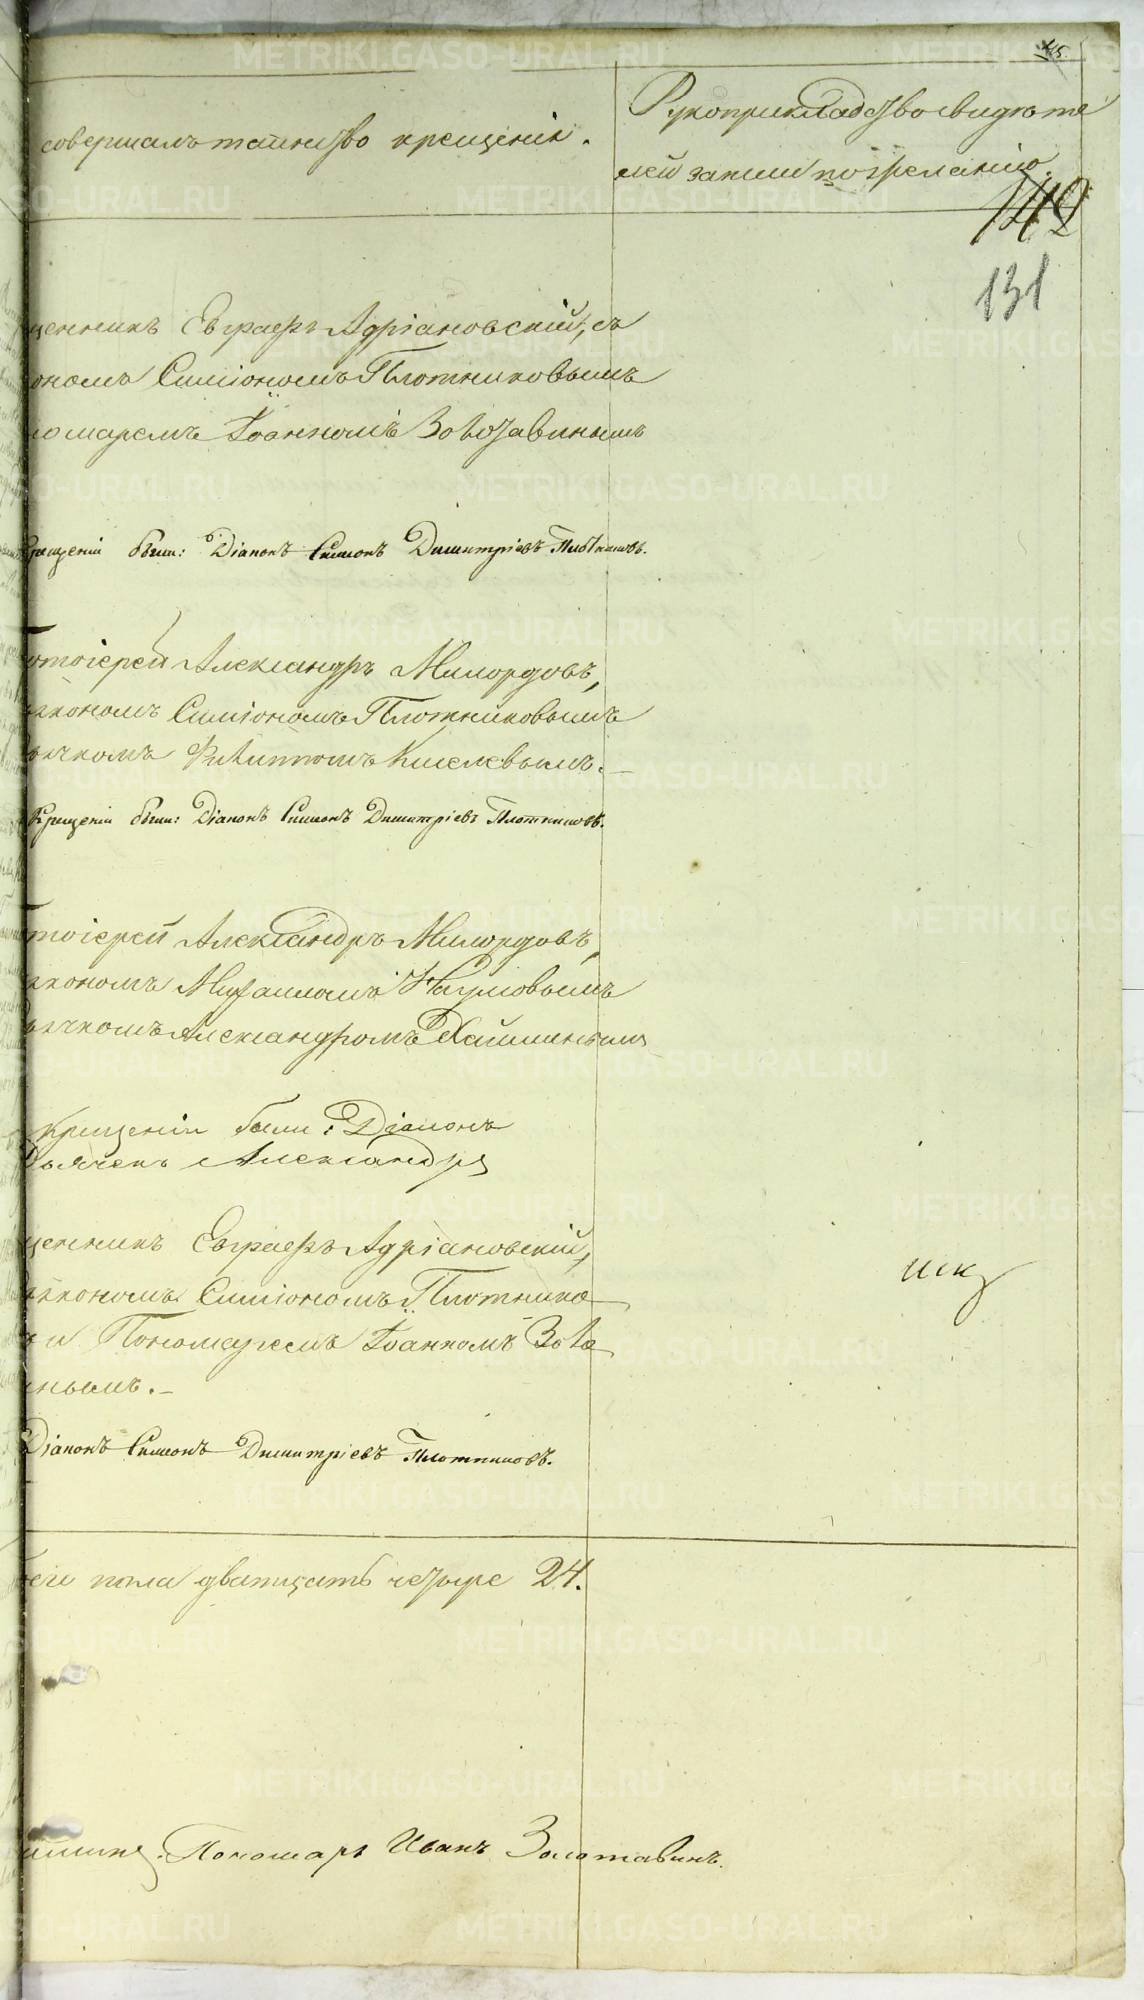 45
совершалъ таинство крещенія.
Рукоприкладство свидѣте
лей записи по желанію.
142
131
щенникъ Евграфъ Адріановскій, съ
кономъ Симіономъ Плотниковымъ
номаремъ Іоанномъ Золотавинымъ
Крещеніи были: Діаконъ Симеонъ Димитріевъ Плотниковъ.
отоіерей Александръ Милордовъ,
іакономъ Симіономъ Плотниковымъ
ьячкомъ Филиппомъ Киселевымъ.
Крещеніи были: Діаконъ Симеонъ Димитріевъ Плотниковъ.
тоіерей Александръ Милордовъ,
іакономъ Михаиломъ Наумовымъ
ьячкомъ Александромъ Хайминымъ
Крещеніи были: Діаконъ
Дьячекъ Александръ
щенникъ Евграфъ Адріановскій,
іакономъ Симіономъ Плотнико
ъ и Пономаремъ Іоанномъ Золо
инымъ.
Діаконъ Симеонъ Димитріевъ Плотниковъ.
иск
его пола дватцать четыре 24.
Пономарь Иванъ Золотавинъ.
METRIKI.GASO-URAL.RU